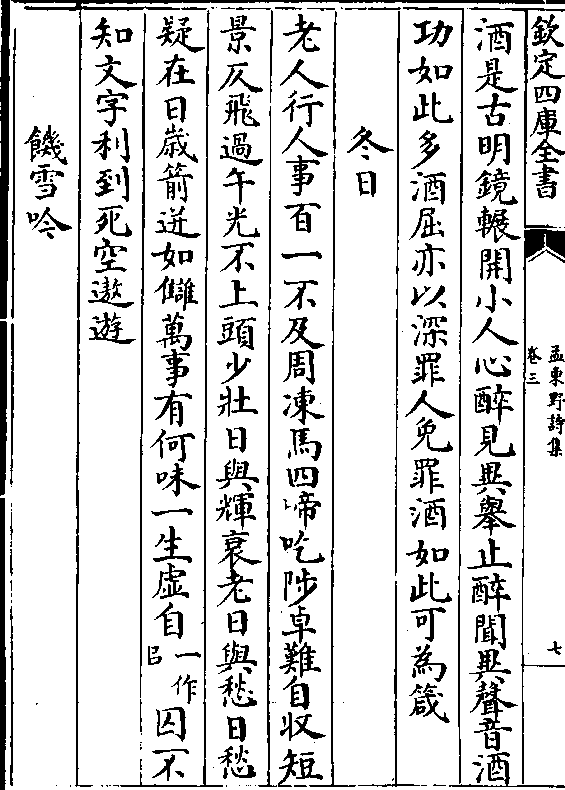 欽定四庫全書
孟東野詩集
卷三
七
酒是古明鏡輾開小人心醉見異舉止醉聞異聲音酒
功如此多酒屈亦以深罪人免罪酒如此可為箴
冬日
老人行人事百一不及周凍馬四啼吃陟卓難自収短
景仄飛過午光不上頭少壯日與輝衰老日與愁日愁
疑在日歲箭迸如讎萬事有何味一生虛自一作㠯囚不
知文字利到死空遨遊
饑雪吟